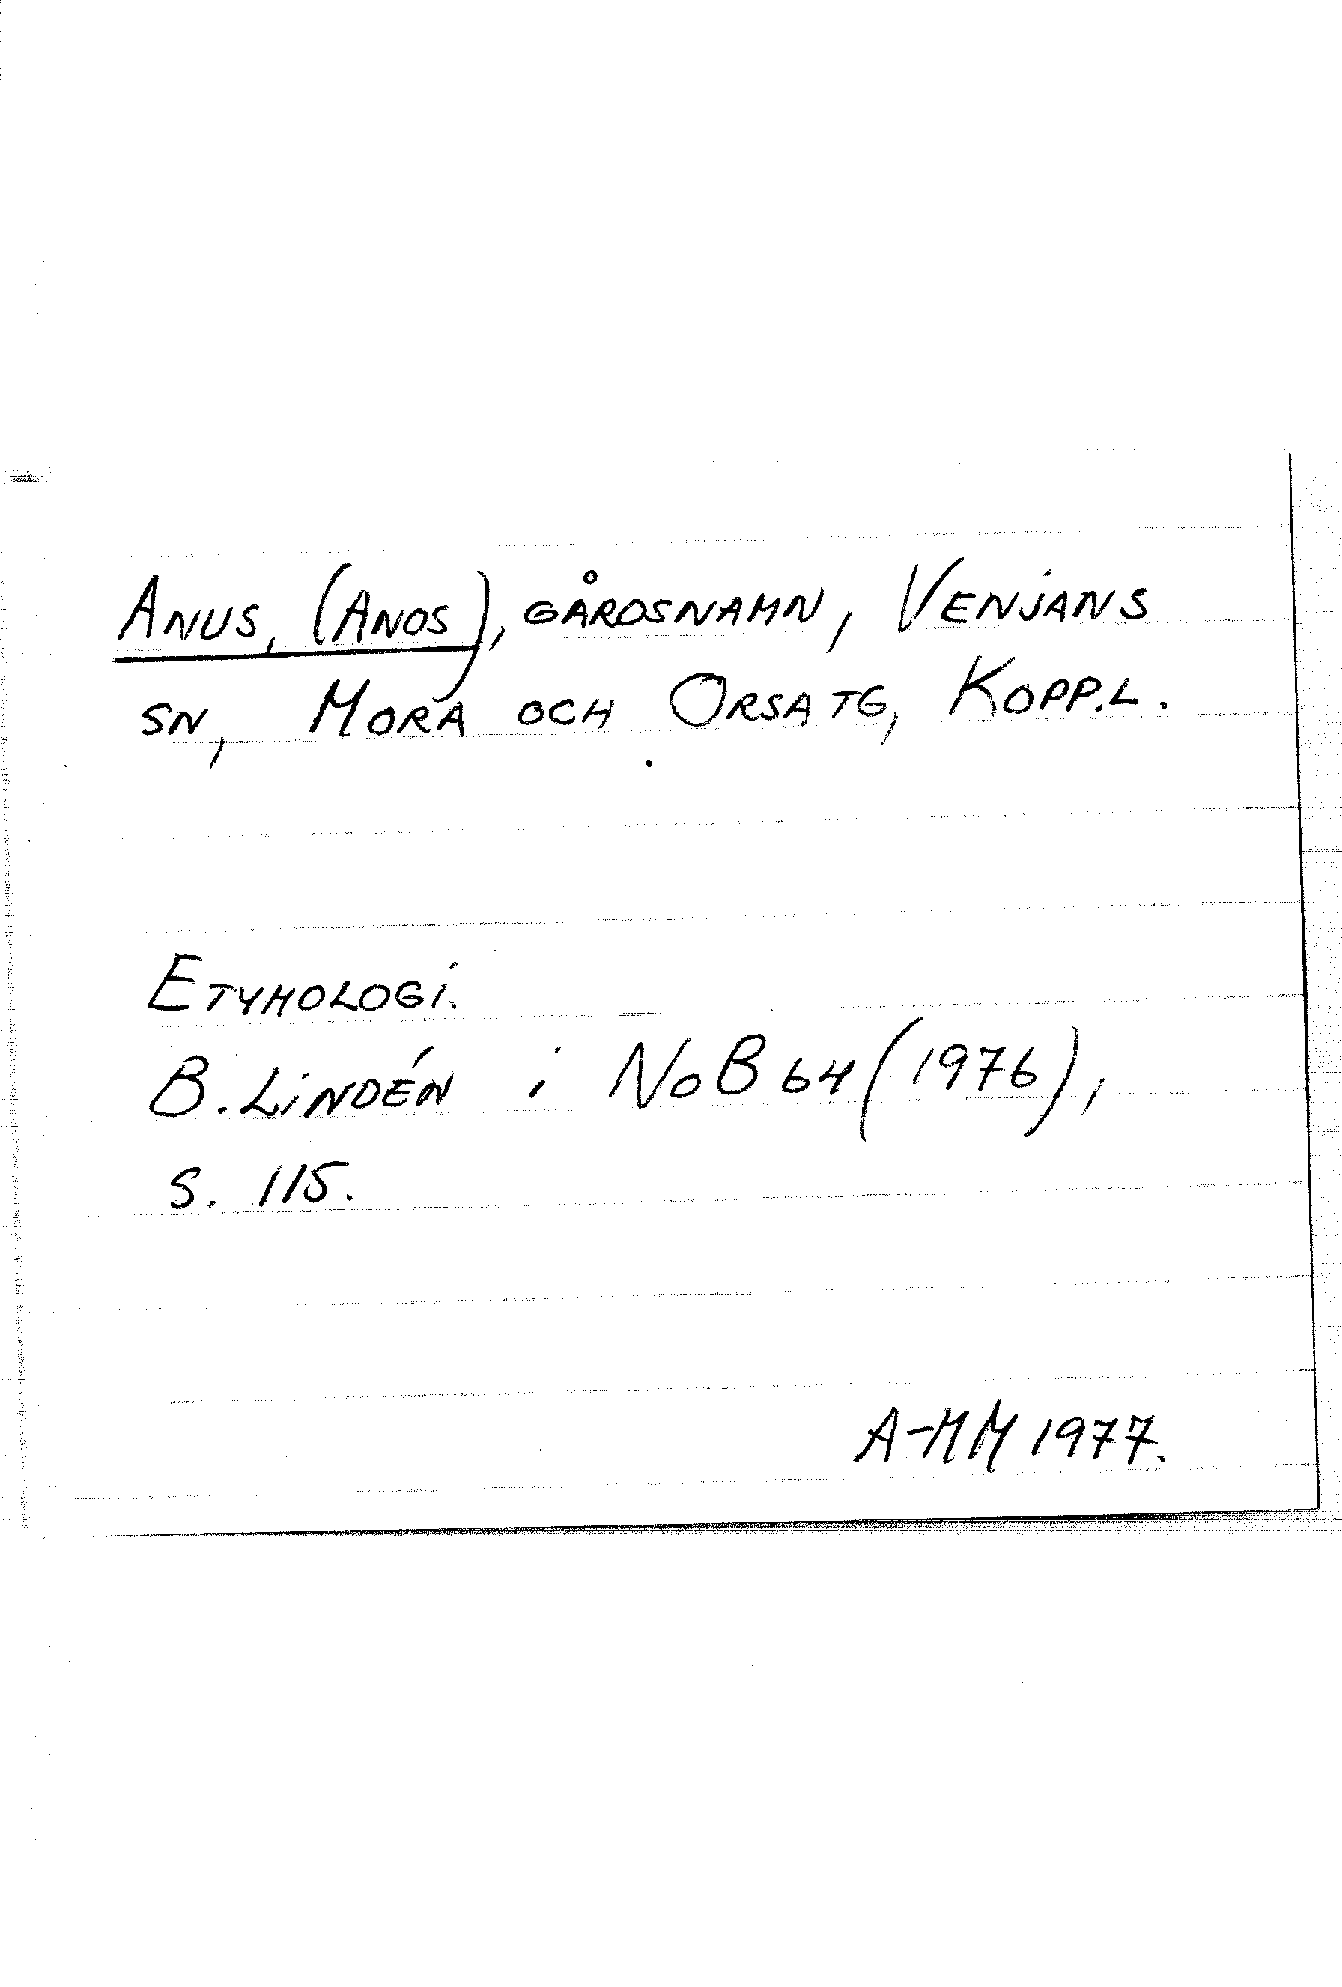 Anus, (Anos), gårdsnamn, Venjans
sn, Mora och Orsa tg, Kopp.l.
Etymologi.
B. Lindén i NoB 64 (1976),
s. 115.
A-MM 1977.